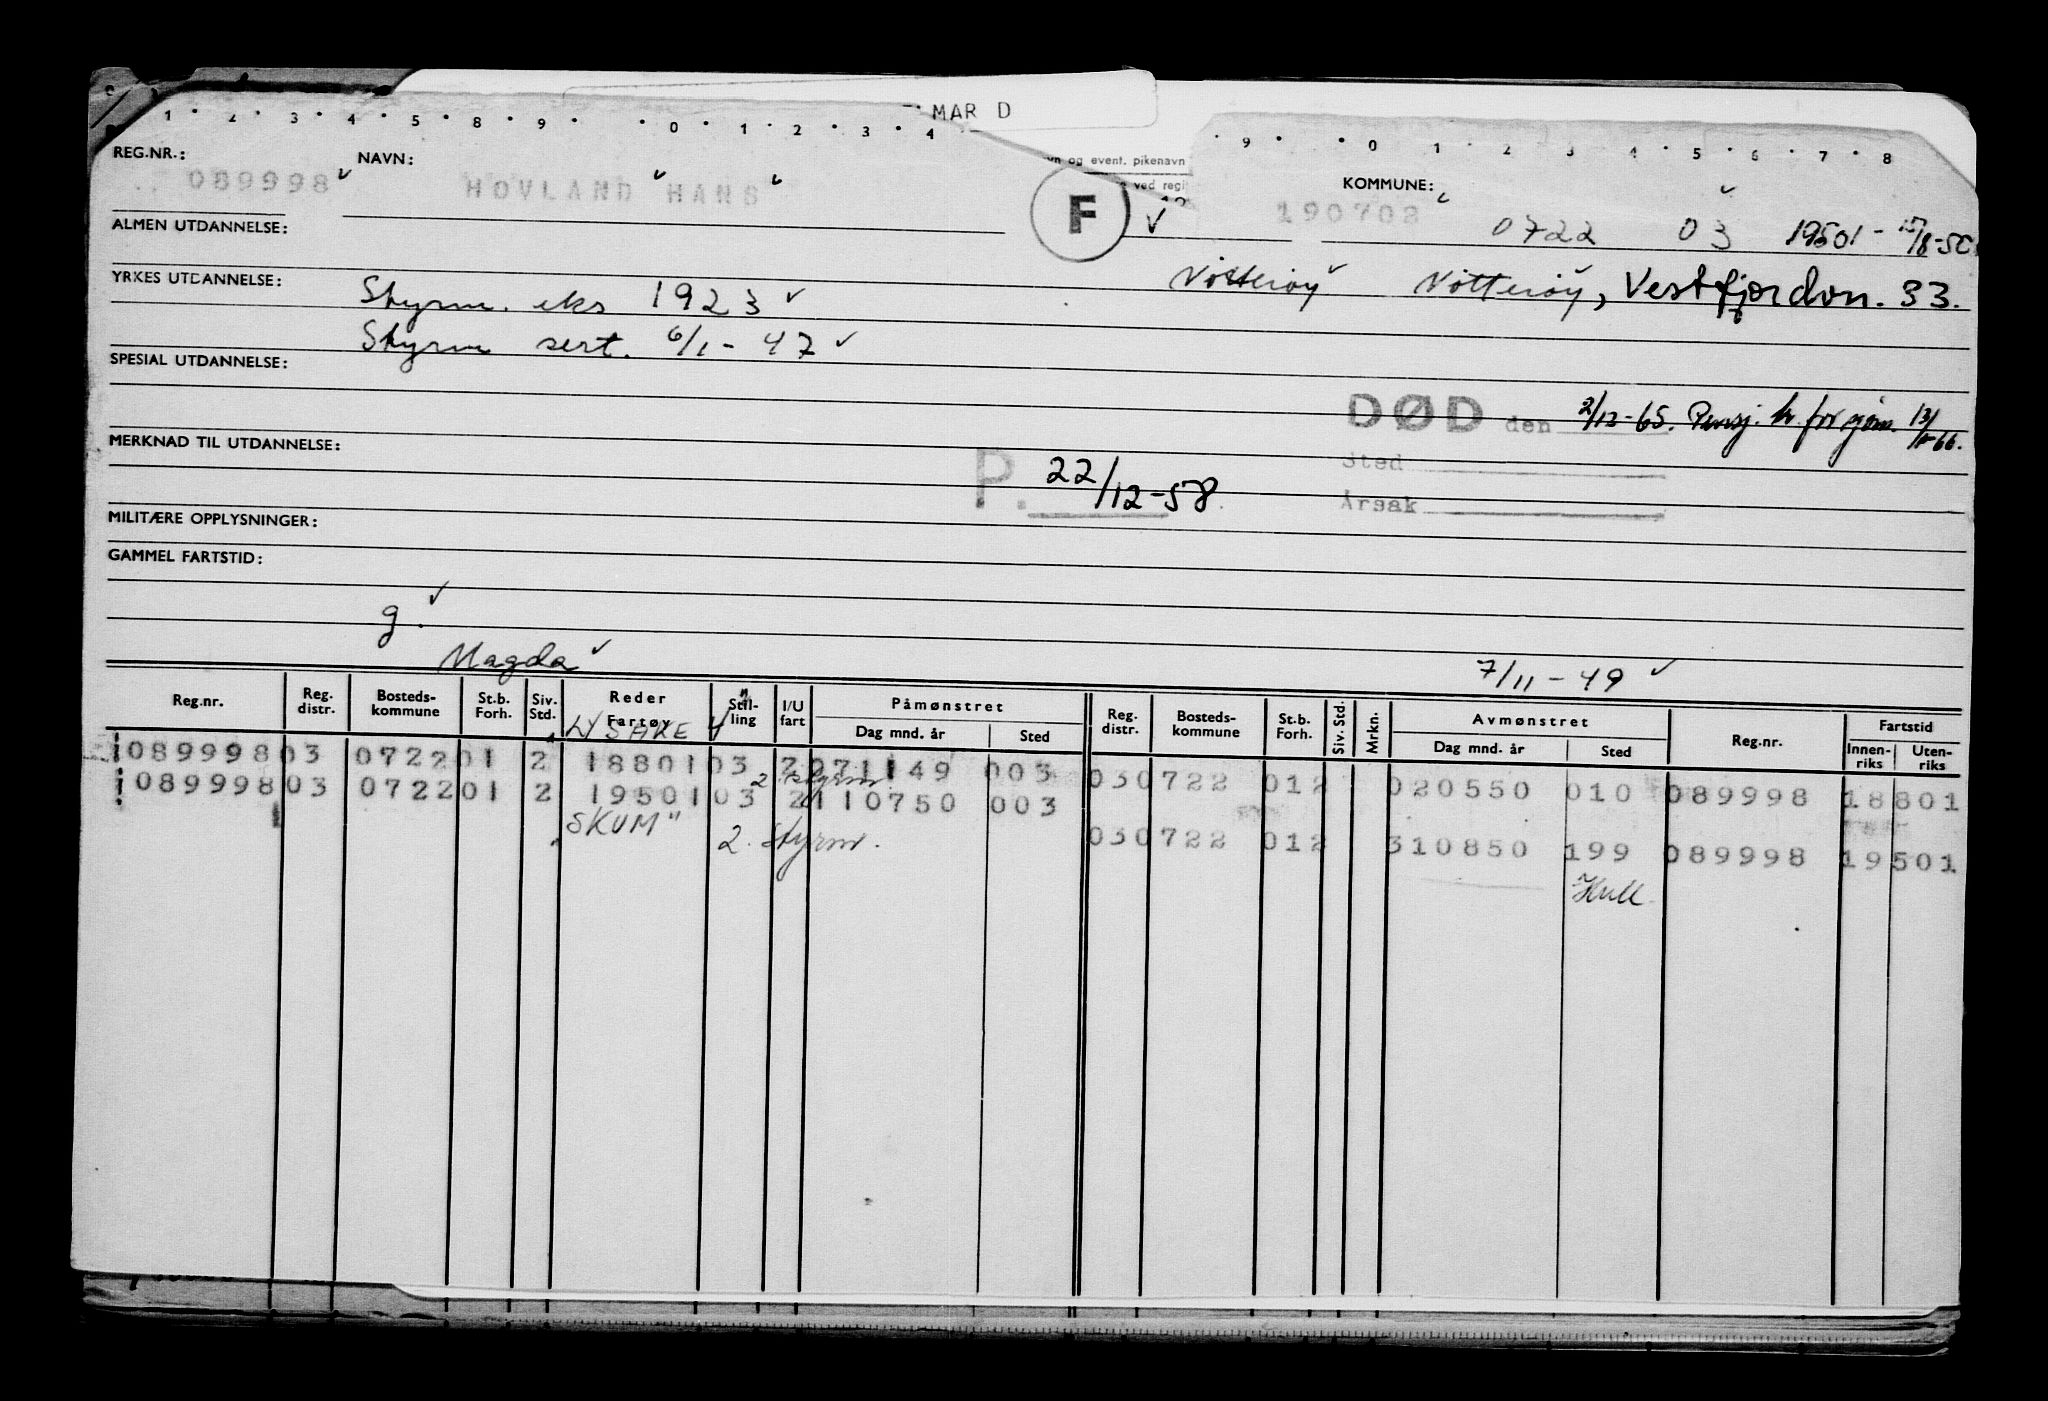 MAR D
1 2 3 4 5 8 9 0 1 2 3 4
9 0 1 2 3 4 5 6 7 8
REG.NR.: NAVN: og event. pikenavn KOMMUNE:
089998 HOVLAND HANS ved regi 190702
F
ALMEN UTDANNELSE: 0722 03 19501 - 15/8-50
YRKES UTDANNELSE: Styrm. eks 1923 Nötteröy Nötteröy, Vestfjordvn. 33.
Styrm sert. 6/1-47
SPESIAL UTDANNELSE:
DØD den 2/12-65. Pensj. k. for sjøm. 13/1-66.
MERKNAD TIL UTDANNELSE: Sted
P. 22/12-58. Årsak
MILITÆRE OPPLYSNINGER:
GAMMEL FARTSTID:
g.
Magda 7/11-49
Reg.nr. Reg. distr. Bosteds-kommune St.b. Forh. Siv. Std. Reder Fartøy Stil-ling I/U fart Påmønstret Dag mnd. år Sted Reg. distr. Bosteds-kommune St.b. Forh. Siv. Std. Mrkn. Avmønstret Dag mnd. år Sted Reg.nr. Fartstid Innen-riks Uten-riks
LYSAKER V"
089998 03 0722 01 2 18801 03 2 071149 003 030722 012 020550 010 089998 18801
2 styrm.
089998 03 0722 01 2 19501 03 2 110750 003
SKUM" 2. Styrm. 030722 012 310850 199 089998 19501
Hull